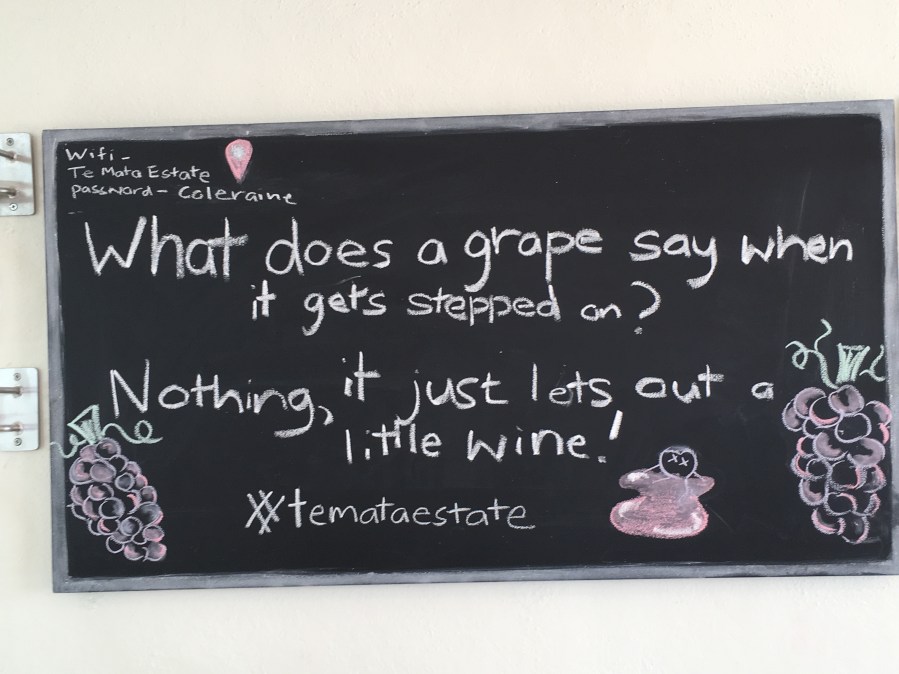 Wifi -
Te Mata Estate
password - Coleraine
What does a grape say when
it gets stepped on?
Nothing, it just lets out a
little wine!
#temataestate